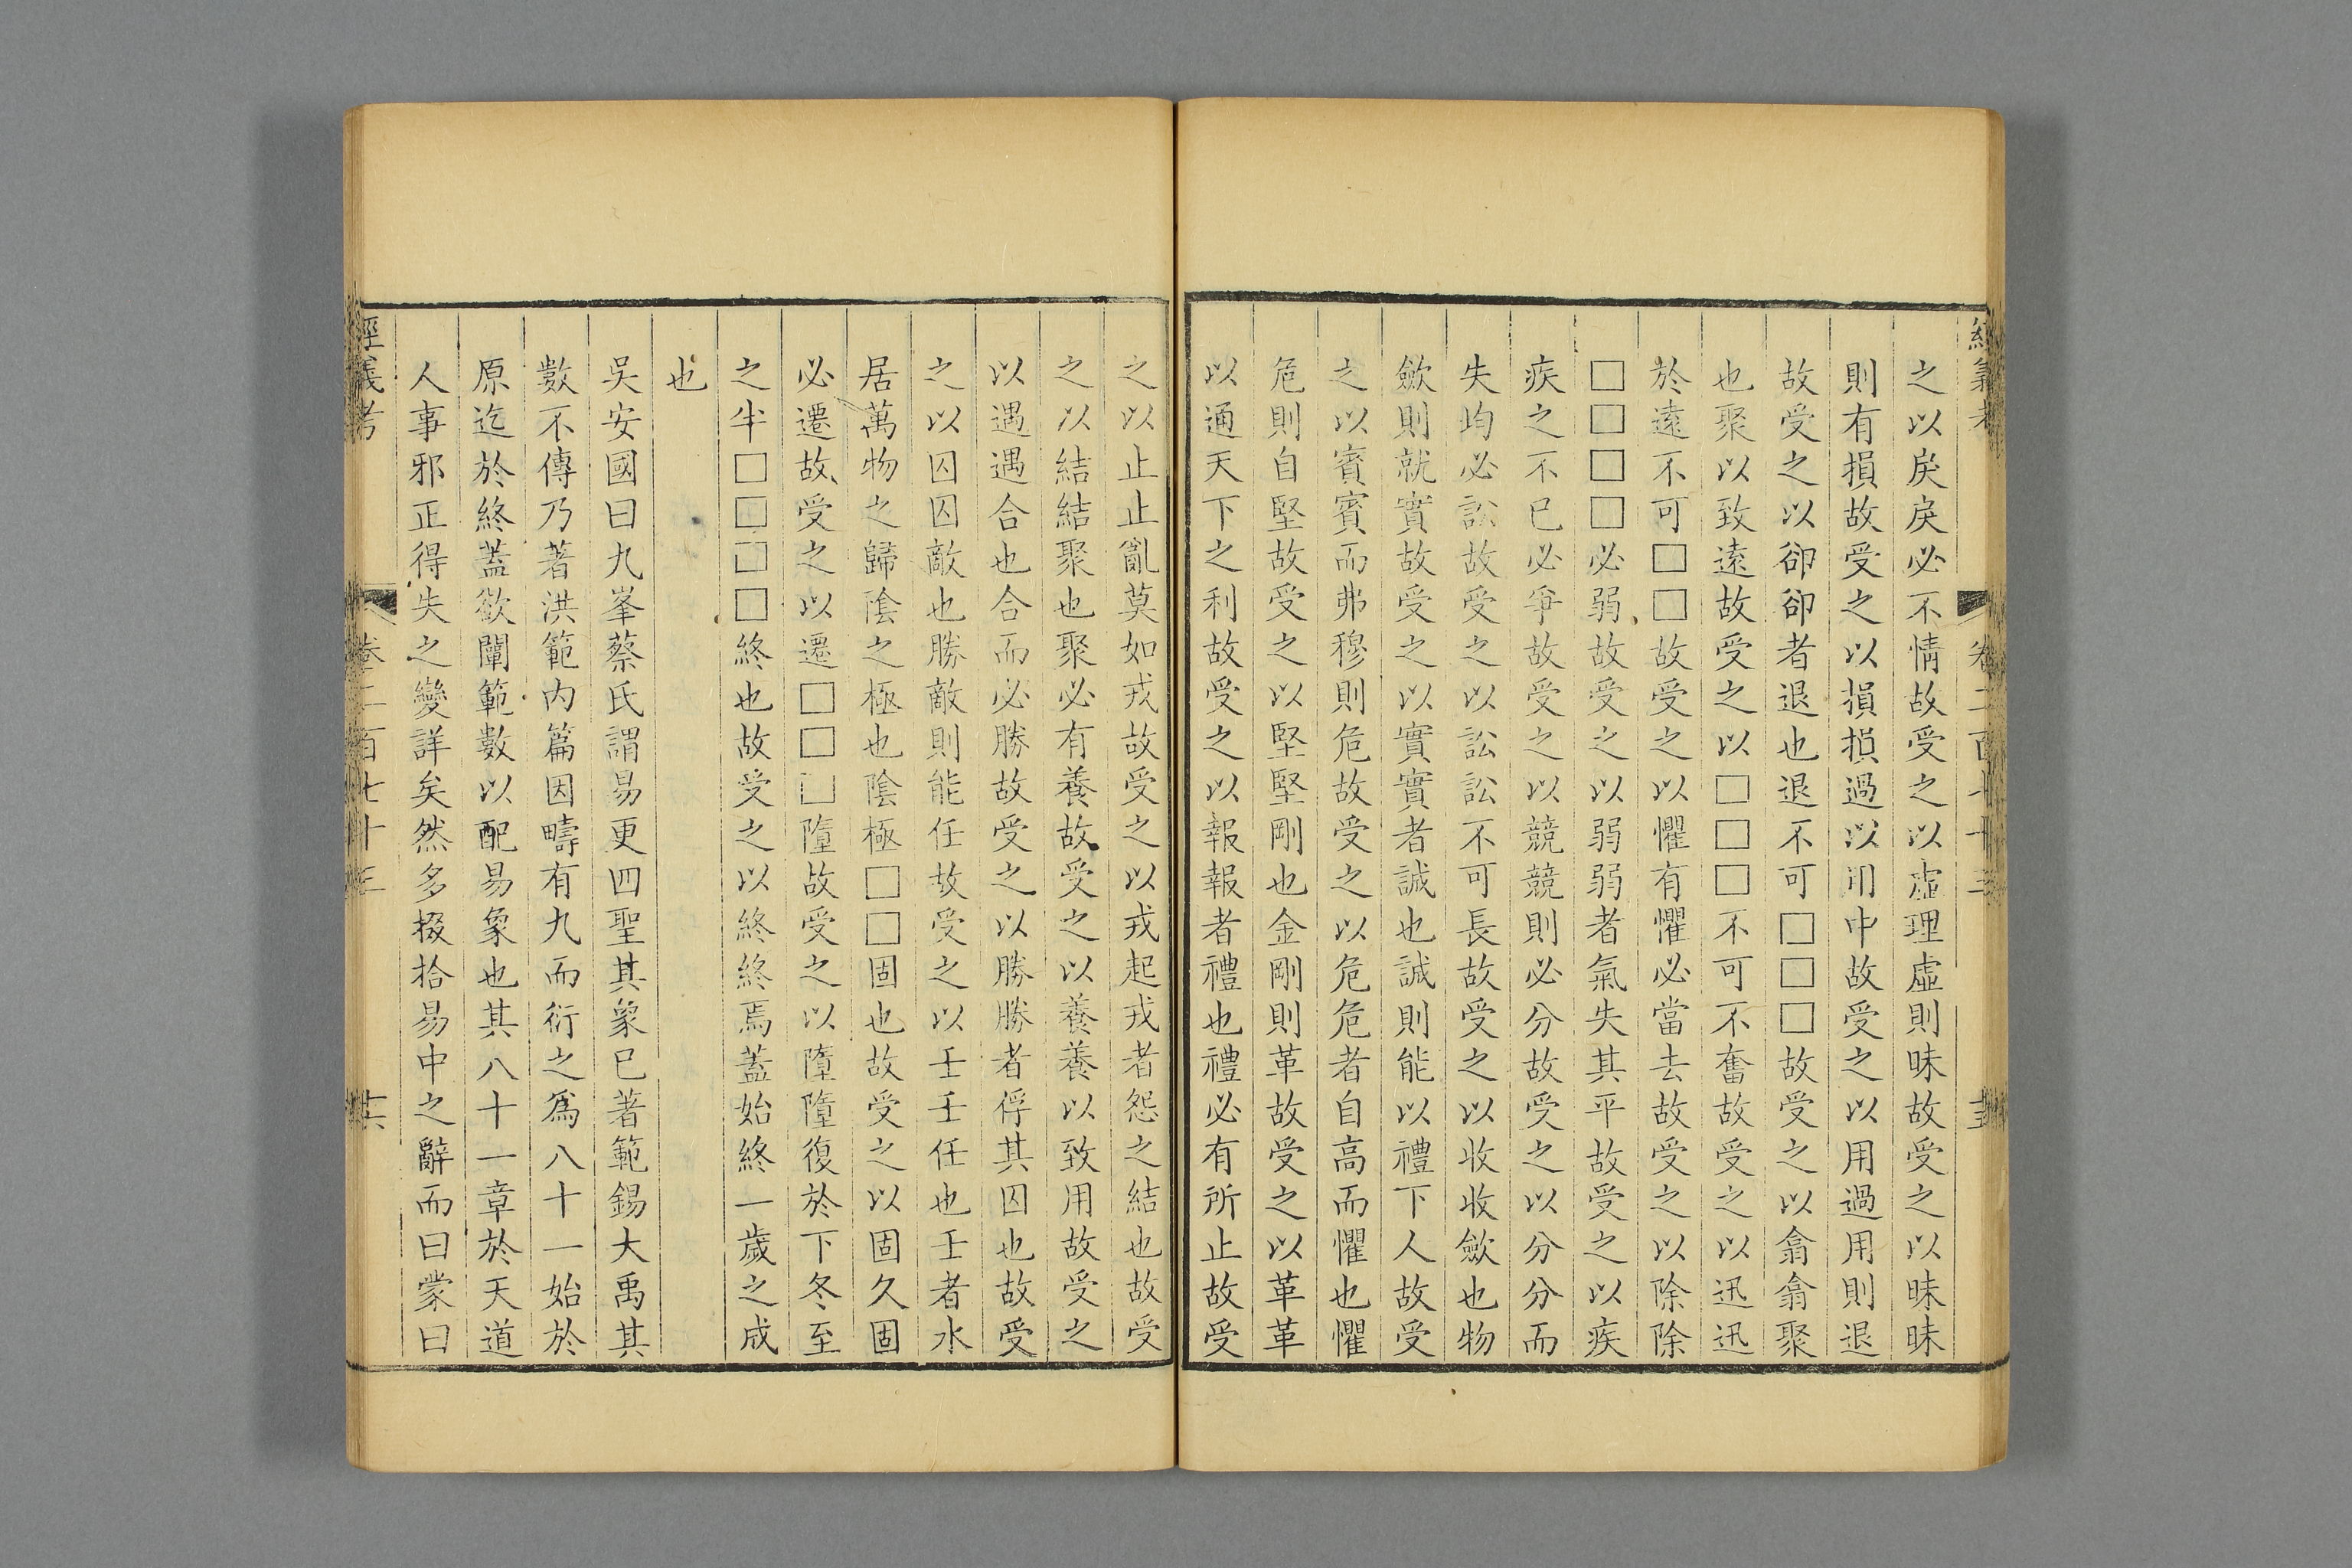 之以戾戾必不情故受之以虛理虛則昧故受之以昧昧
則有損故受之以損損過以用中故受之以用過用則退
故受之以卻卻者退也退不可□□□故受之以翕翕聚
也聚以致遠故受之以□□□不可不奮故受之以迅迅
於遠不可□□故受之以懼有懼必當去故受之以除除
□□□□必弱故受之以弱弱者氣失其平故受之以疾
疾之不已必爭故受之以競競則必分故受之以分分而
失均必訟故受之以訟訟不可長故受之以收收歛也物
歛則就實故受之以實實者誠也誠則能以禮下人故受
之以賓賓而弗穆則危故受之以危危者自高而懼也懼
危則自堅故受之以堅堅剛也金剛則革故受之以革革
以通天下之利故受之以報報者禮也禮必有所止故受
之以止止亂莫如戎故受之以戎起戎者怨之結也故受
之以結結聚也聚必有養故受之以養養以致用故受之
以遇遇合也合而必勝故受之以勝勝者俘其囚也故受
之以囚囚敵也勝敵則能任故受之以壬壬任也壬者水
居萬物之歸陰之極也陰極□□固也故受之以固久固
必遷故受之以遷□□□墮故受之以墮墮復於下冬至
之半□□□□終也故受之以終終焉蓋始終一歲之成
也
吳安國曰九峯蔡氏謂易更四聖其象已著範錫大禹其
數不傳乃著洪範內篇因疇有九而衍之爲八十一始於
原迄於終蓋欲闡範數以配易象也其八十一章於天道
人事邪正得失之變詳矣然多掇拾易中之辭而曰蒙曰
經義考
卷二百七十三